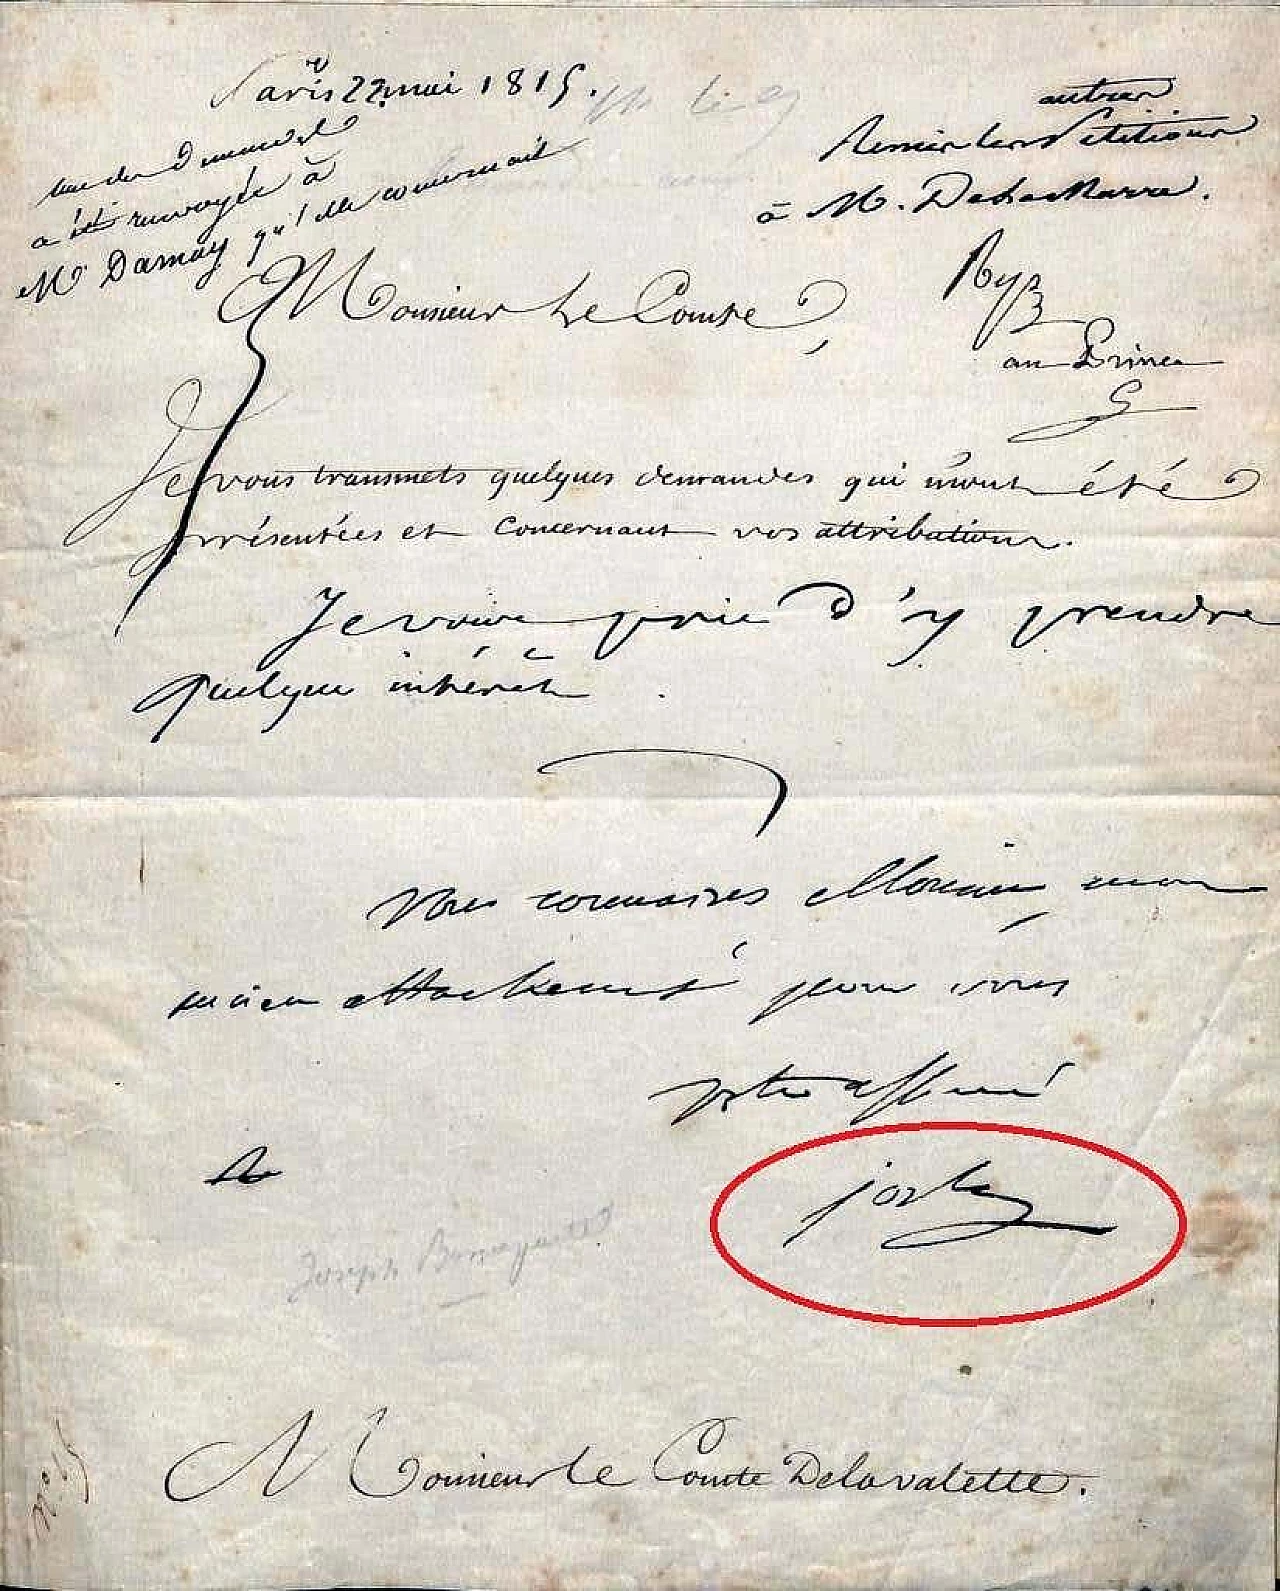 Paris 22 mai 1815.
une des Demandes
a été renvoyée à
Mr Darnay qu'elle concernait
autres
Remis les Pétitions
à M.
Monsieur Le Comte,
au Prince
Je vous transmets quelques demandes qui m'ont été
présentées et concernant vos attributions.
Je vous prie d'y prendre
quelque intérêt.
Vous connaissés Monsieur mon
ancien attachement pour vous
votre affné
joseph
Joseph Bonaparte
Monsieur le Comte Delavalette.